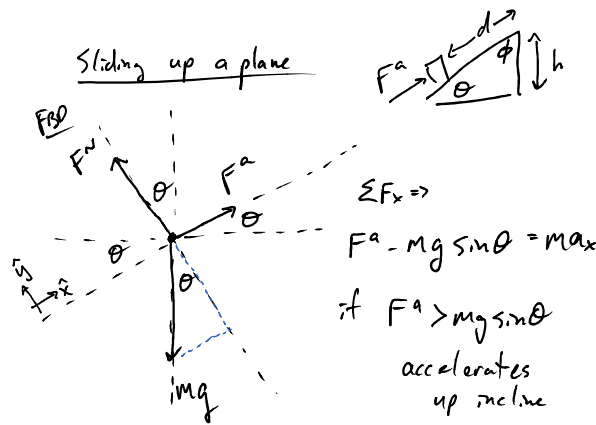 Sliding up a plane
d
F^a
ϕ
h
θ
FBD
F^N
θ
F^a
θ
θ
θ
ŷ
x̂
mg
ΣFx ⇒
F^a - mg sinθ = max
if F^a > mg sinθ
accelerates
up incline